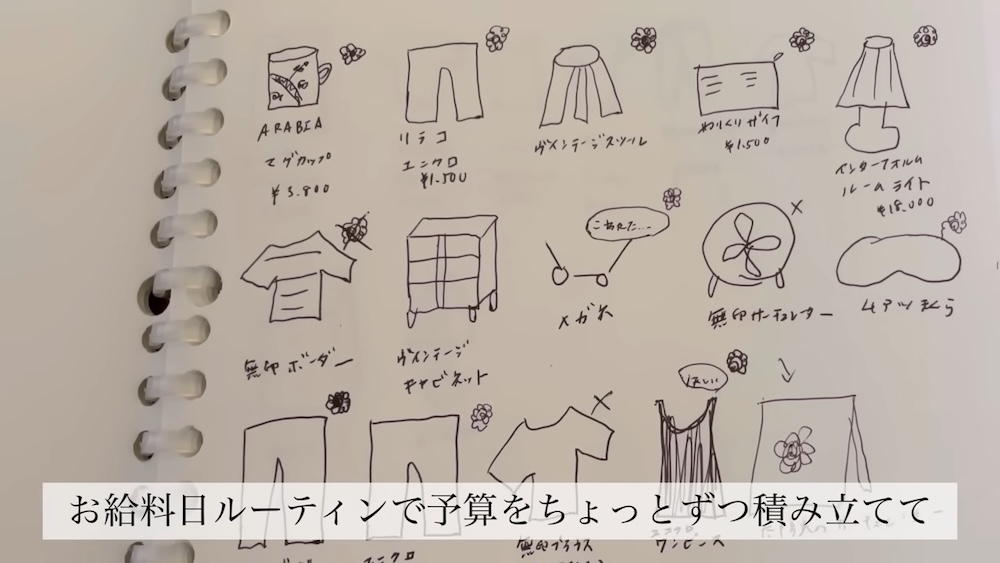 ARABIA
マグカップ
¥3.800
リラコ
ユニクロ
¥1.500
ヴィンテージスツール
やりくりサイフ
¥1.500
インターフォルム
ルームライト
¥18.000
無印ボーダー
ヴィンテージ
キャビネット
こわれた…
メガネ
無印サーキュレーター
ムアツまくら
ほしい
ユニクロ
無印ブラウス
ユニクロ
ワンピース
お給料日ルーティンで予算をちょっとずつ積み立てて